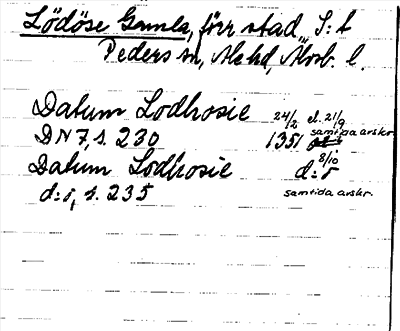 Lödöse Gamla, förr stad, S:t
Peders sn, Ale hd, Älvsb. l.
Datum Lodhosie 24/2 el. 21/9
DN 7, s. 230 1351 samtida avskr.
Datum Lodhosie d:o 8/10
d:o, s. 235 samtida avskr.